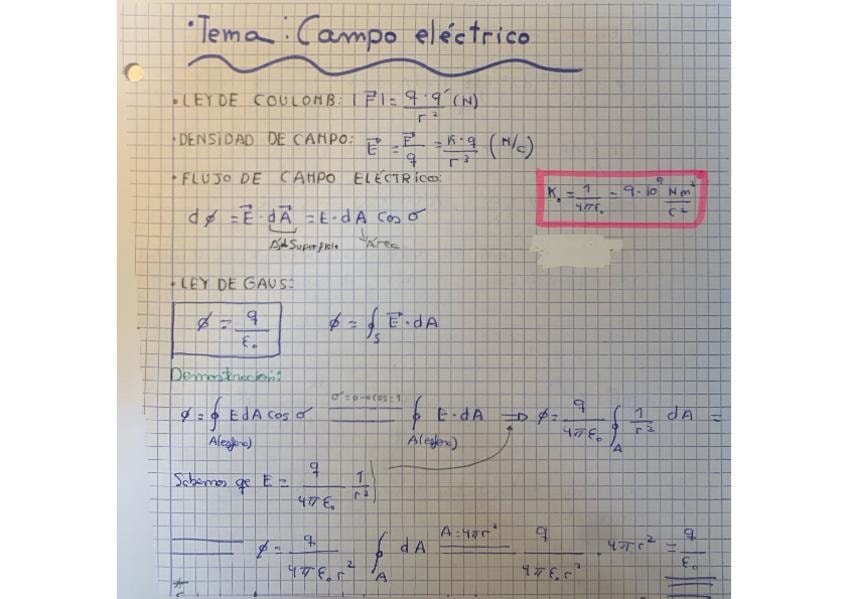 ·Tema: Campo eléctrico
·LEY DE COULOMB: |F⃗| = q·q´/r² (N)
·DENSIDAD DE CAMPO: E⃗ = F⃗/q = K·q/r² (N/C)
·FLUJO DE CAMPO ELÉCTRICO:
K₀ = 1/4πε₀ = 9·10⁹ Nm²/C²
dϕ = E⃗·dA⃗ = E·dA cos σ
Superficie Área
·LEY DE GAUS:
ϕ = q/ε₀ ϕ = ∮S E⃗·dA
Demostracion:
ϕ = ∮A(esfera) E dA cos σ σ=0→cos=1 ∮A(esfera) E·dA ⇒ ϕ = q/4πε₀ ∮A 1/r² dA =
Sabemos qe E = q/4πε₀ 1/r²
ϕ = q/4πε₀r² ∮A dA A=4πr² q/4πε₀r² · 4πr² = q/ε₀